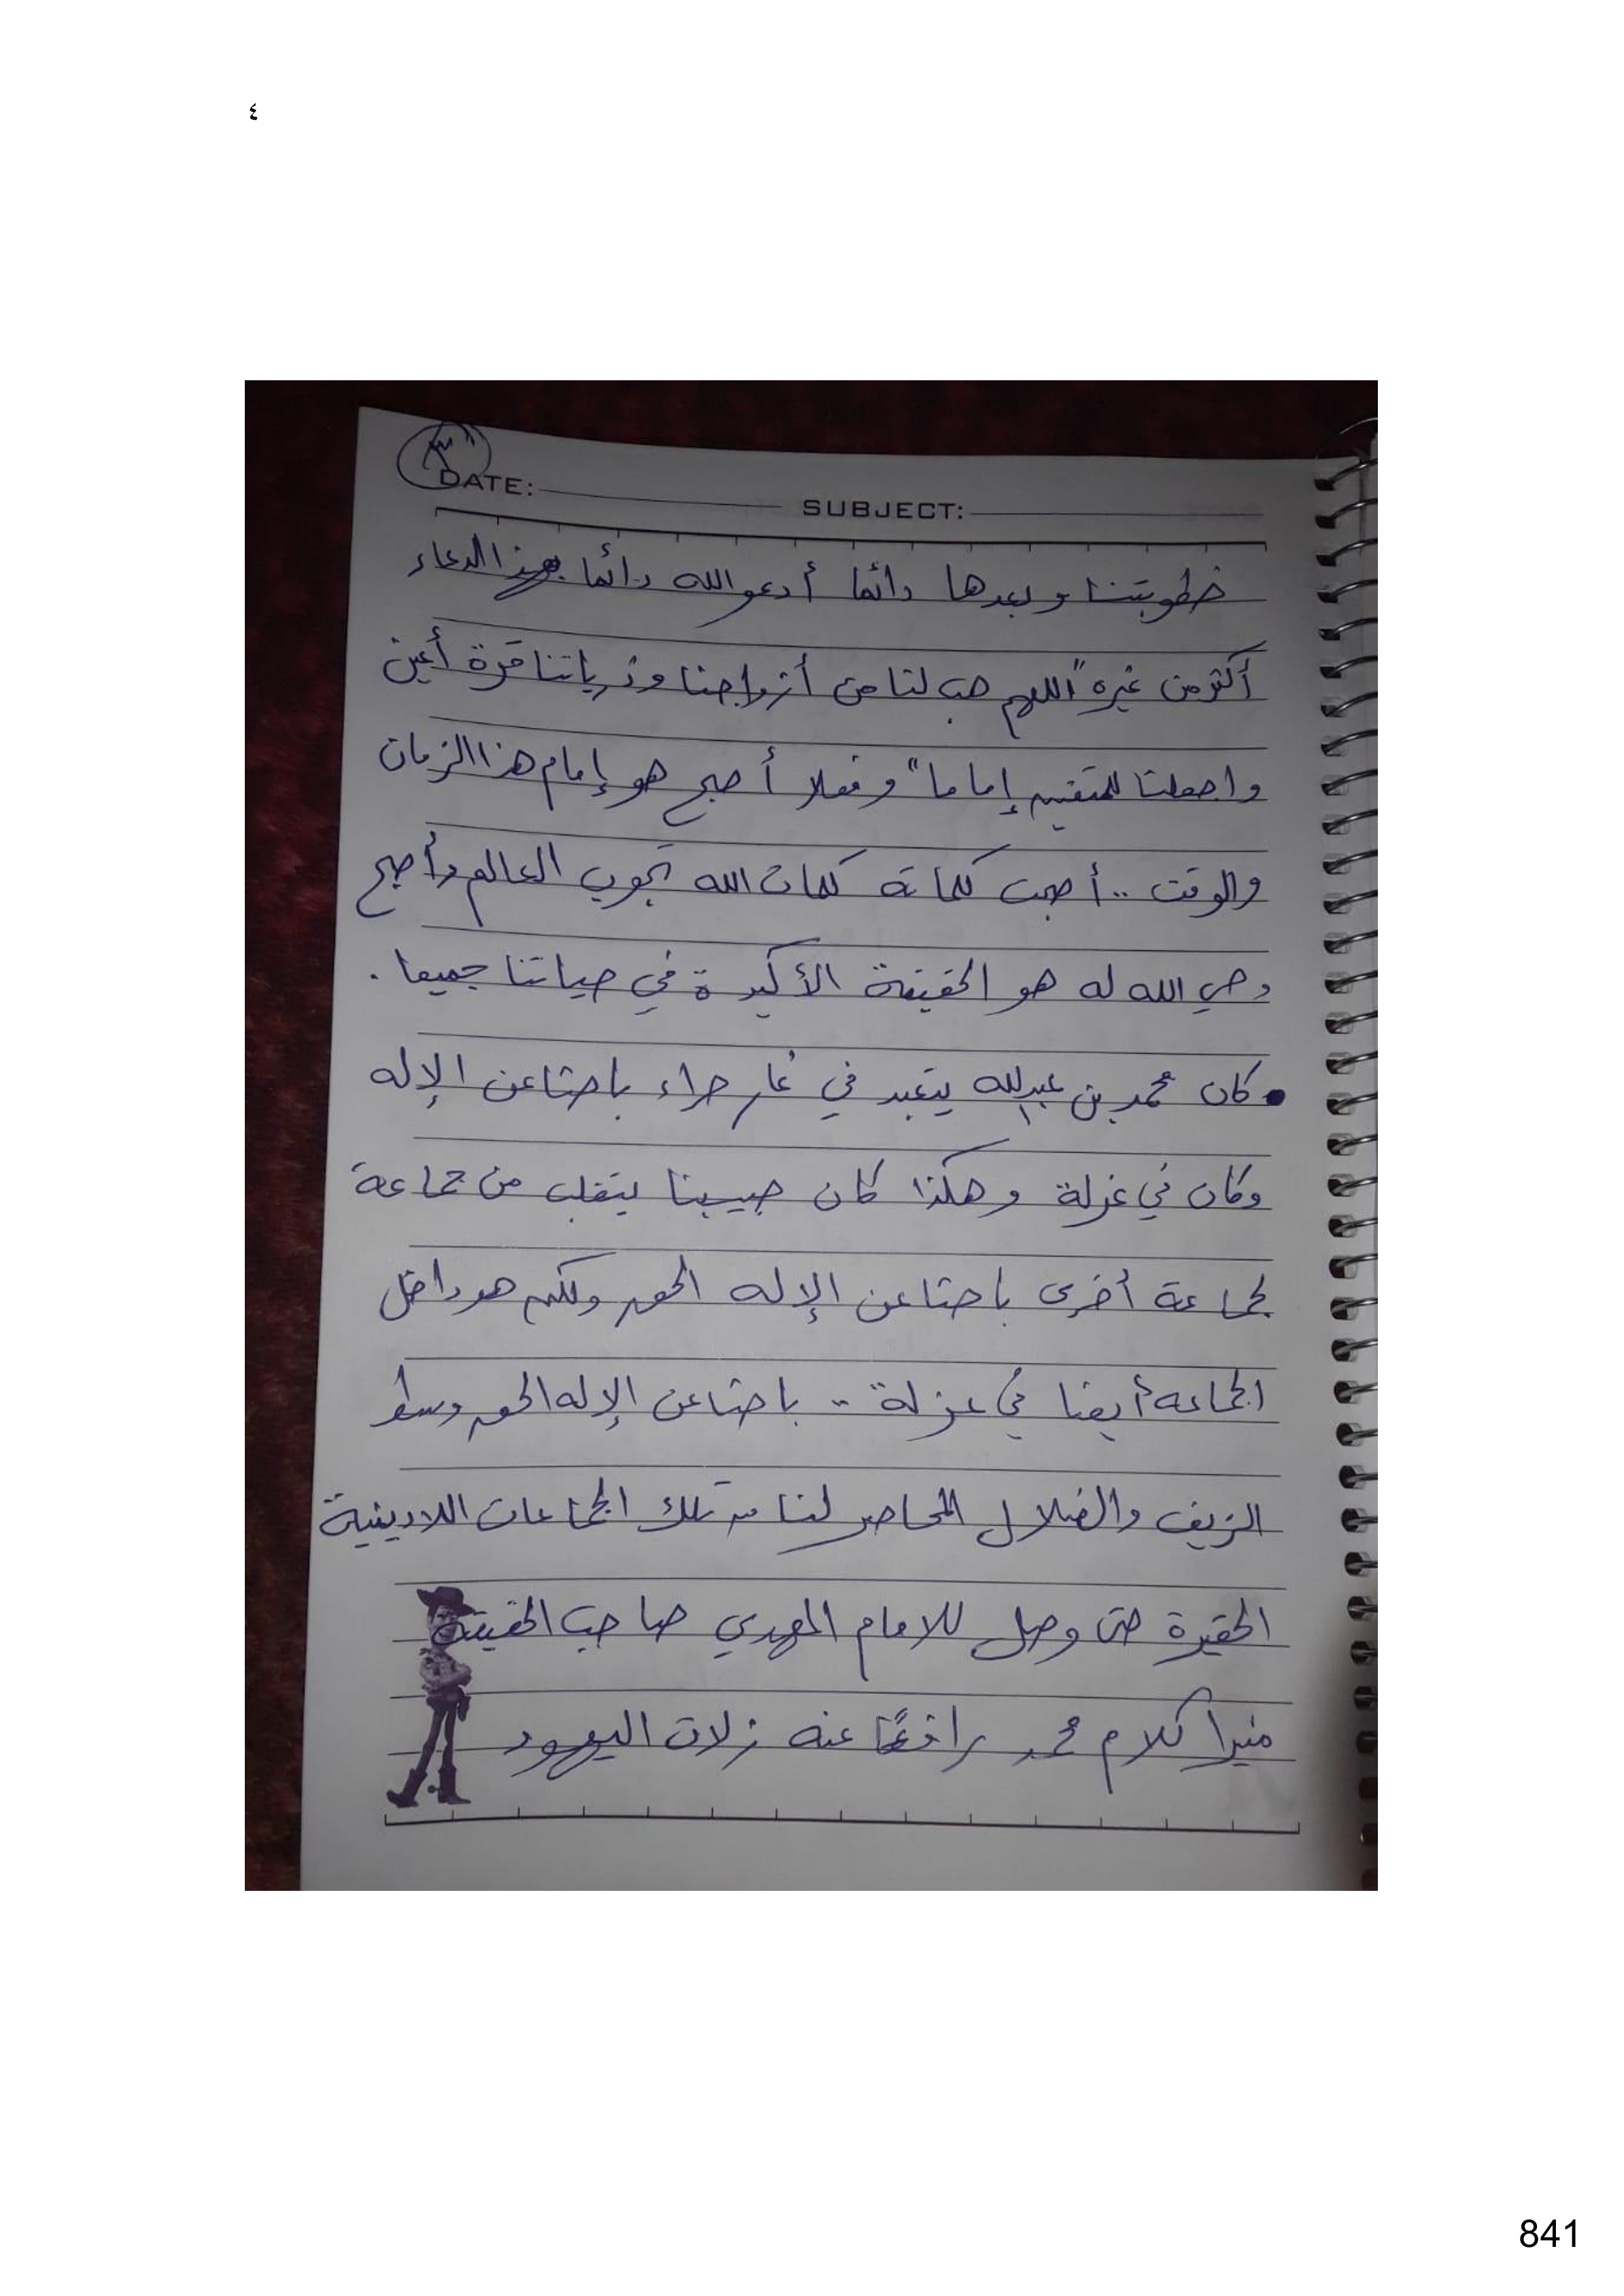 ٤
٣
DATE: SUBJECT:
خطوبتنا وبعدها دائما أدعو الله دائما بهذا الدعاء
أكثر من غيره "اللهم هب لنا من أزواجنا وذرياتنا قرة أعين
واجعلنا للمتقين إماما" وفعلا أصبح هو إمام هذا الزمان
والوقت .. أصبحت كلماته كلمات الله تجوب العالم وأصبح
وحي الله له هو الحقيقة الأكيدة في حياتنا جميعا .
• كان محمد بن عبدالله يتعبد في غار حراء باحثا عن الإله
وكان في عزلة وهكذا كان حبيبنا يتقلب من جماعة
لجماعة أخرى باحثا عن الإله الحق ولكنه هو داخل
الجماعة أيضا في عزلة .. باحثا عن الإله الحق وسط
الزيف والضلال المحاصر لنا من تلك الجماعات اللادينية
الحقيرة حتى وصل للامام المهدي صاحب الحقيقة
كلام محمد رافعًا عنه زلات اليهود
841